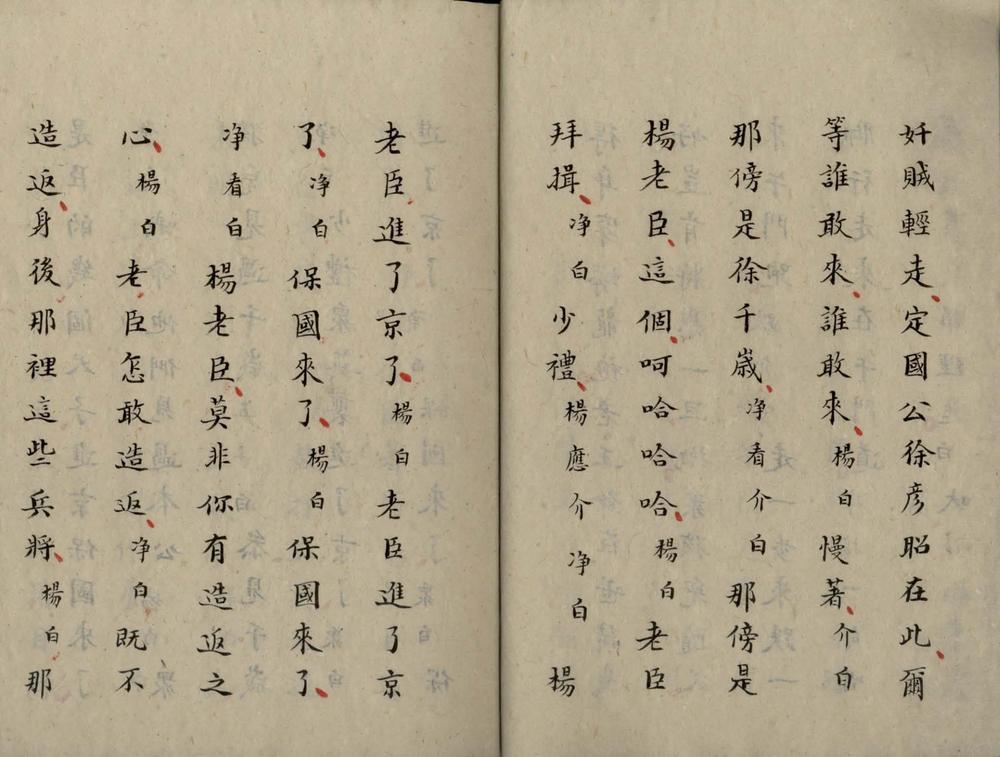 奸賊輕走、定國公徐彦昭在此、爾
等誰敢來、誰敢來、楊白慢著、介白
那傍是徐千歲、净看介白那傍是
楊老臣、這個、呵哈哈哈、楊白老臣
拜揖、净白少禮、楊應介净白楊
老臣進了京了、楊白老臣進了京
了、净白保國來了、楊白保國來了、
净看白楊老臣、莫非你有造返之
心、楊白老臣怎敢造返、净白既不
造返、身後那裡這些兵將、楊白那